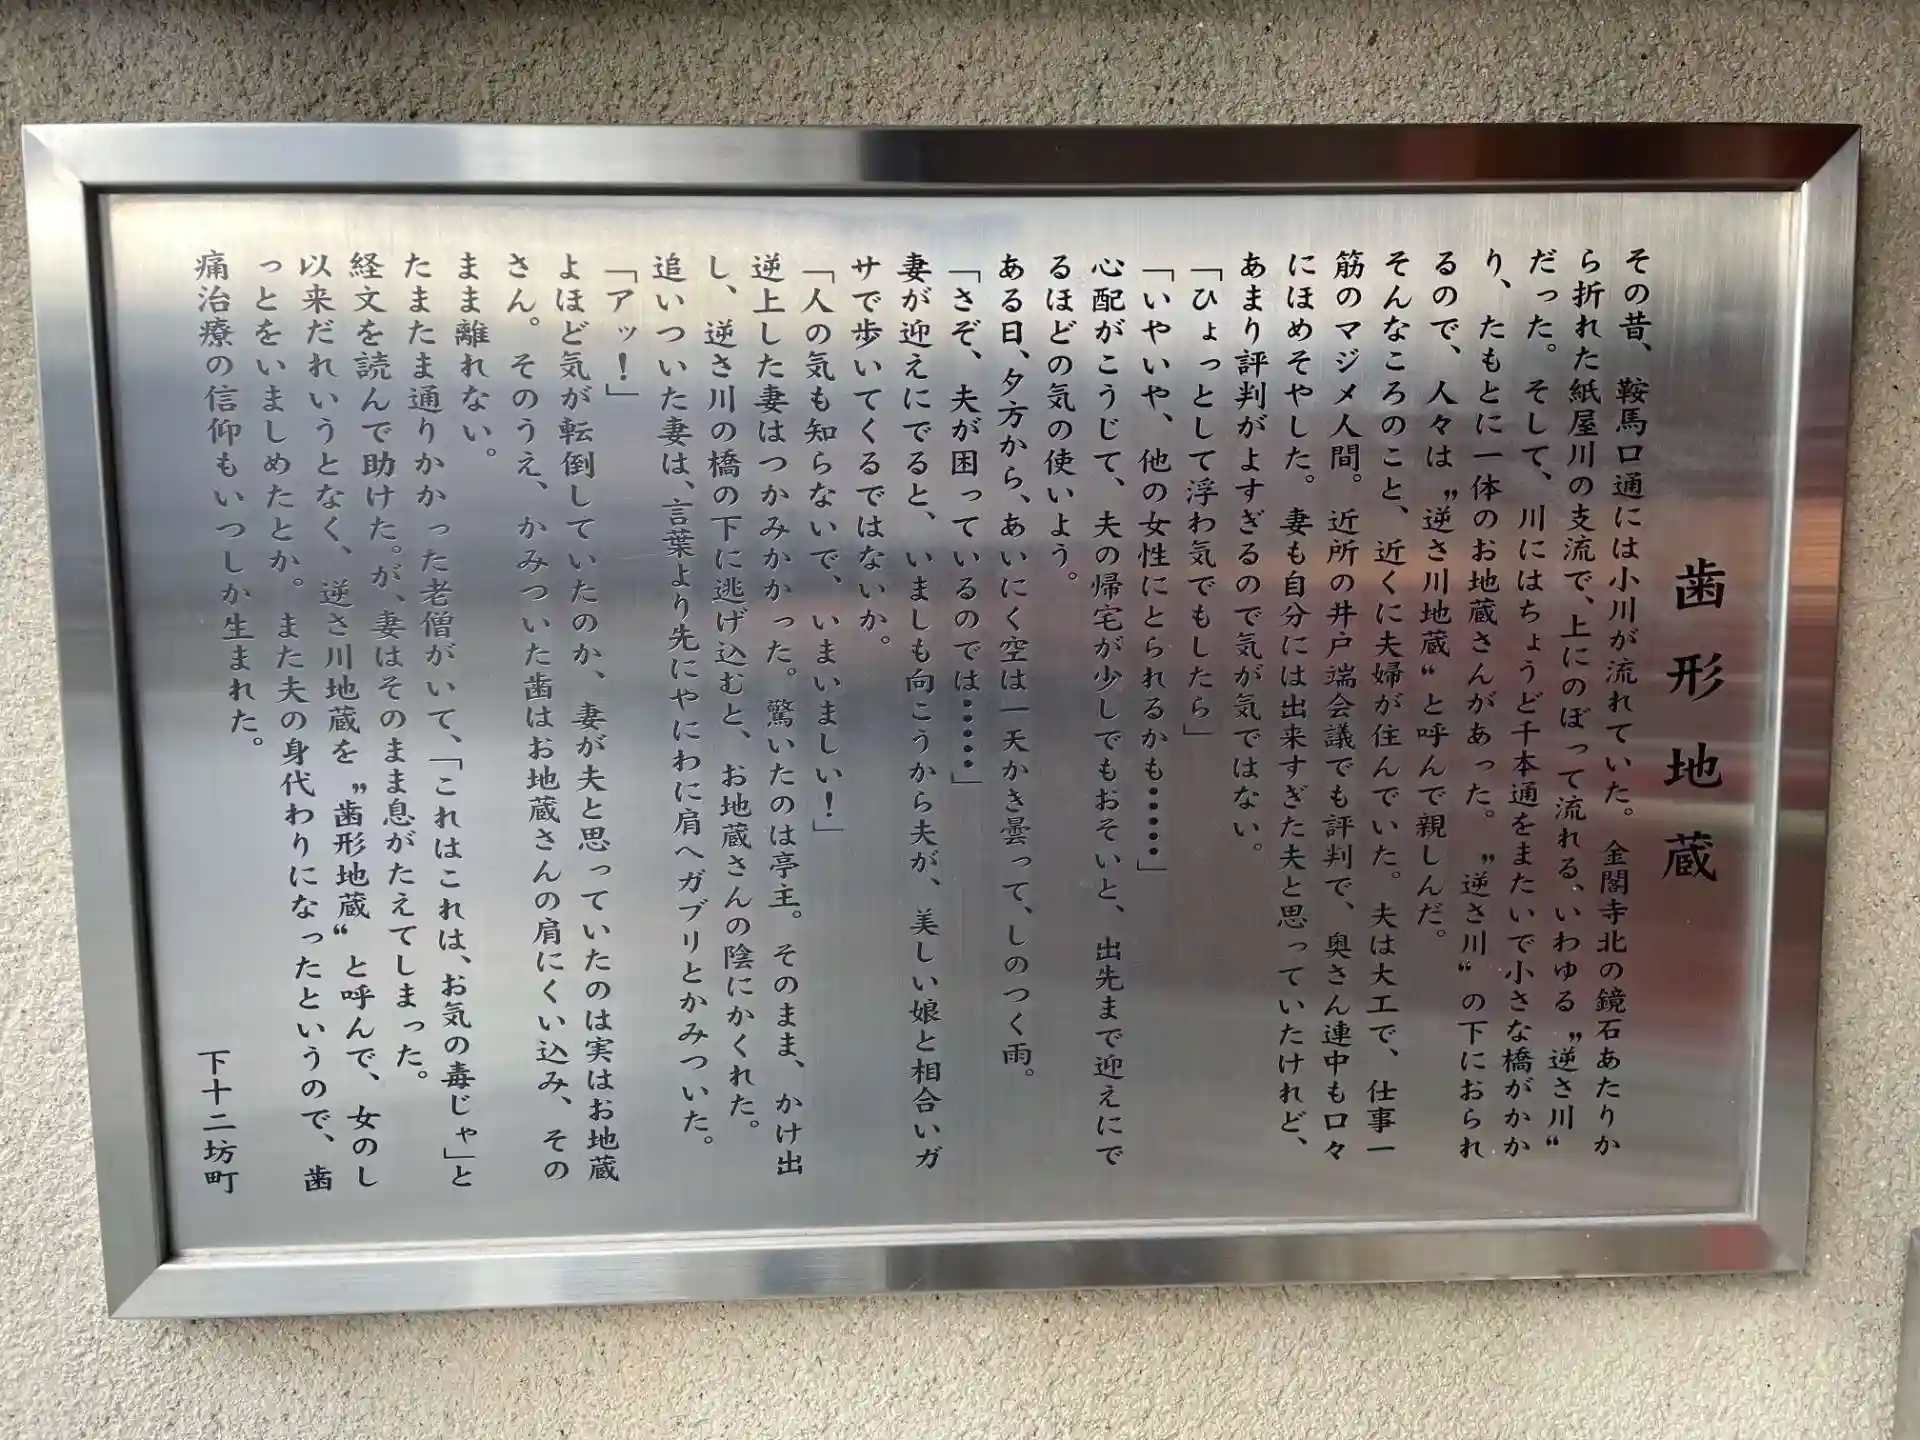 歯形地蔵
その昔、鞍馬口通には小川が流れていた。金閣寺北の鏡石あたりか
ら折れた紙屋川の支流で、上にのぼって流れる、いわゆる〝逆さ川〟
だった。そして、川にはちょうど千本通をまたいで小さな橋がかか
り、たもとに一体のお地蔵さんがあった。〝逆さ川〟の下におられ
るので、人々は〝逆さ川地蔵〟と呼んで親しんだ。
そんなころのこと、近くに夫婦が住んでいた。夫は大工で、仕事一
筋のマジメ人間。近所の井戸端会議でも評判で、奥さん連中も口々
にほめそやした。妻も自分には出来すぎた夫と思っていたけれど、
あまり評判がよすぎるので気が気ではない。
「ひょっとして浮わ気でもしたら」
「いやいや、他の女性にとられるかも……」
心配がこうじて、夫の帰宅が少しでもおそいと、出先まで迎えにで
るほどの気の使いよう。
ある日、夕方から、あいにく空は一天かき曇って、しのつく雨。
「さぞ、夫が困っているのでは……」
妻が迎えにでると、いましも向こうから夫が、美しい娘と相合いガ
サで歩いてくるではないか。
「人の気も知らないで、いまいましい！」
逆上した妻はつかみかかった。驚いたのは亭主。そのまま、かけ出
し、逆さ川の橋の下に逃げ込むと、お地蔵さんの陰にかくれた。
追いついた妻は、言葉より先にやにわに肩へガブリとかみついた。
「アッ！」
よほど気が転倒していたのか、妻が夫と思っていたのは実はお地蔵
さん。そのうえ、かみついた歯はお地蔵さんの肩にくい込み、その
まま離れない。
たまたま通りかかった老僧がいて、「これはこれは、お気の毒じゃ」と
経文を読んで助けた。が、妻はそのまま息がたえてしまった。
以来だれいうとなく、逆さ川地蔵を〝歯形地蔵〟と呼んで、女のし
っとをいましめたとか。また夫の身代わりになったというので、歯
痛治療の信仰もいつしか生まれた。
下十二坊町